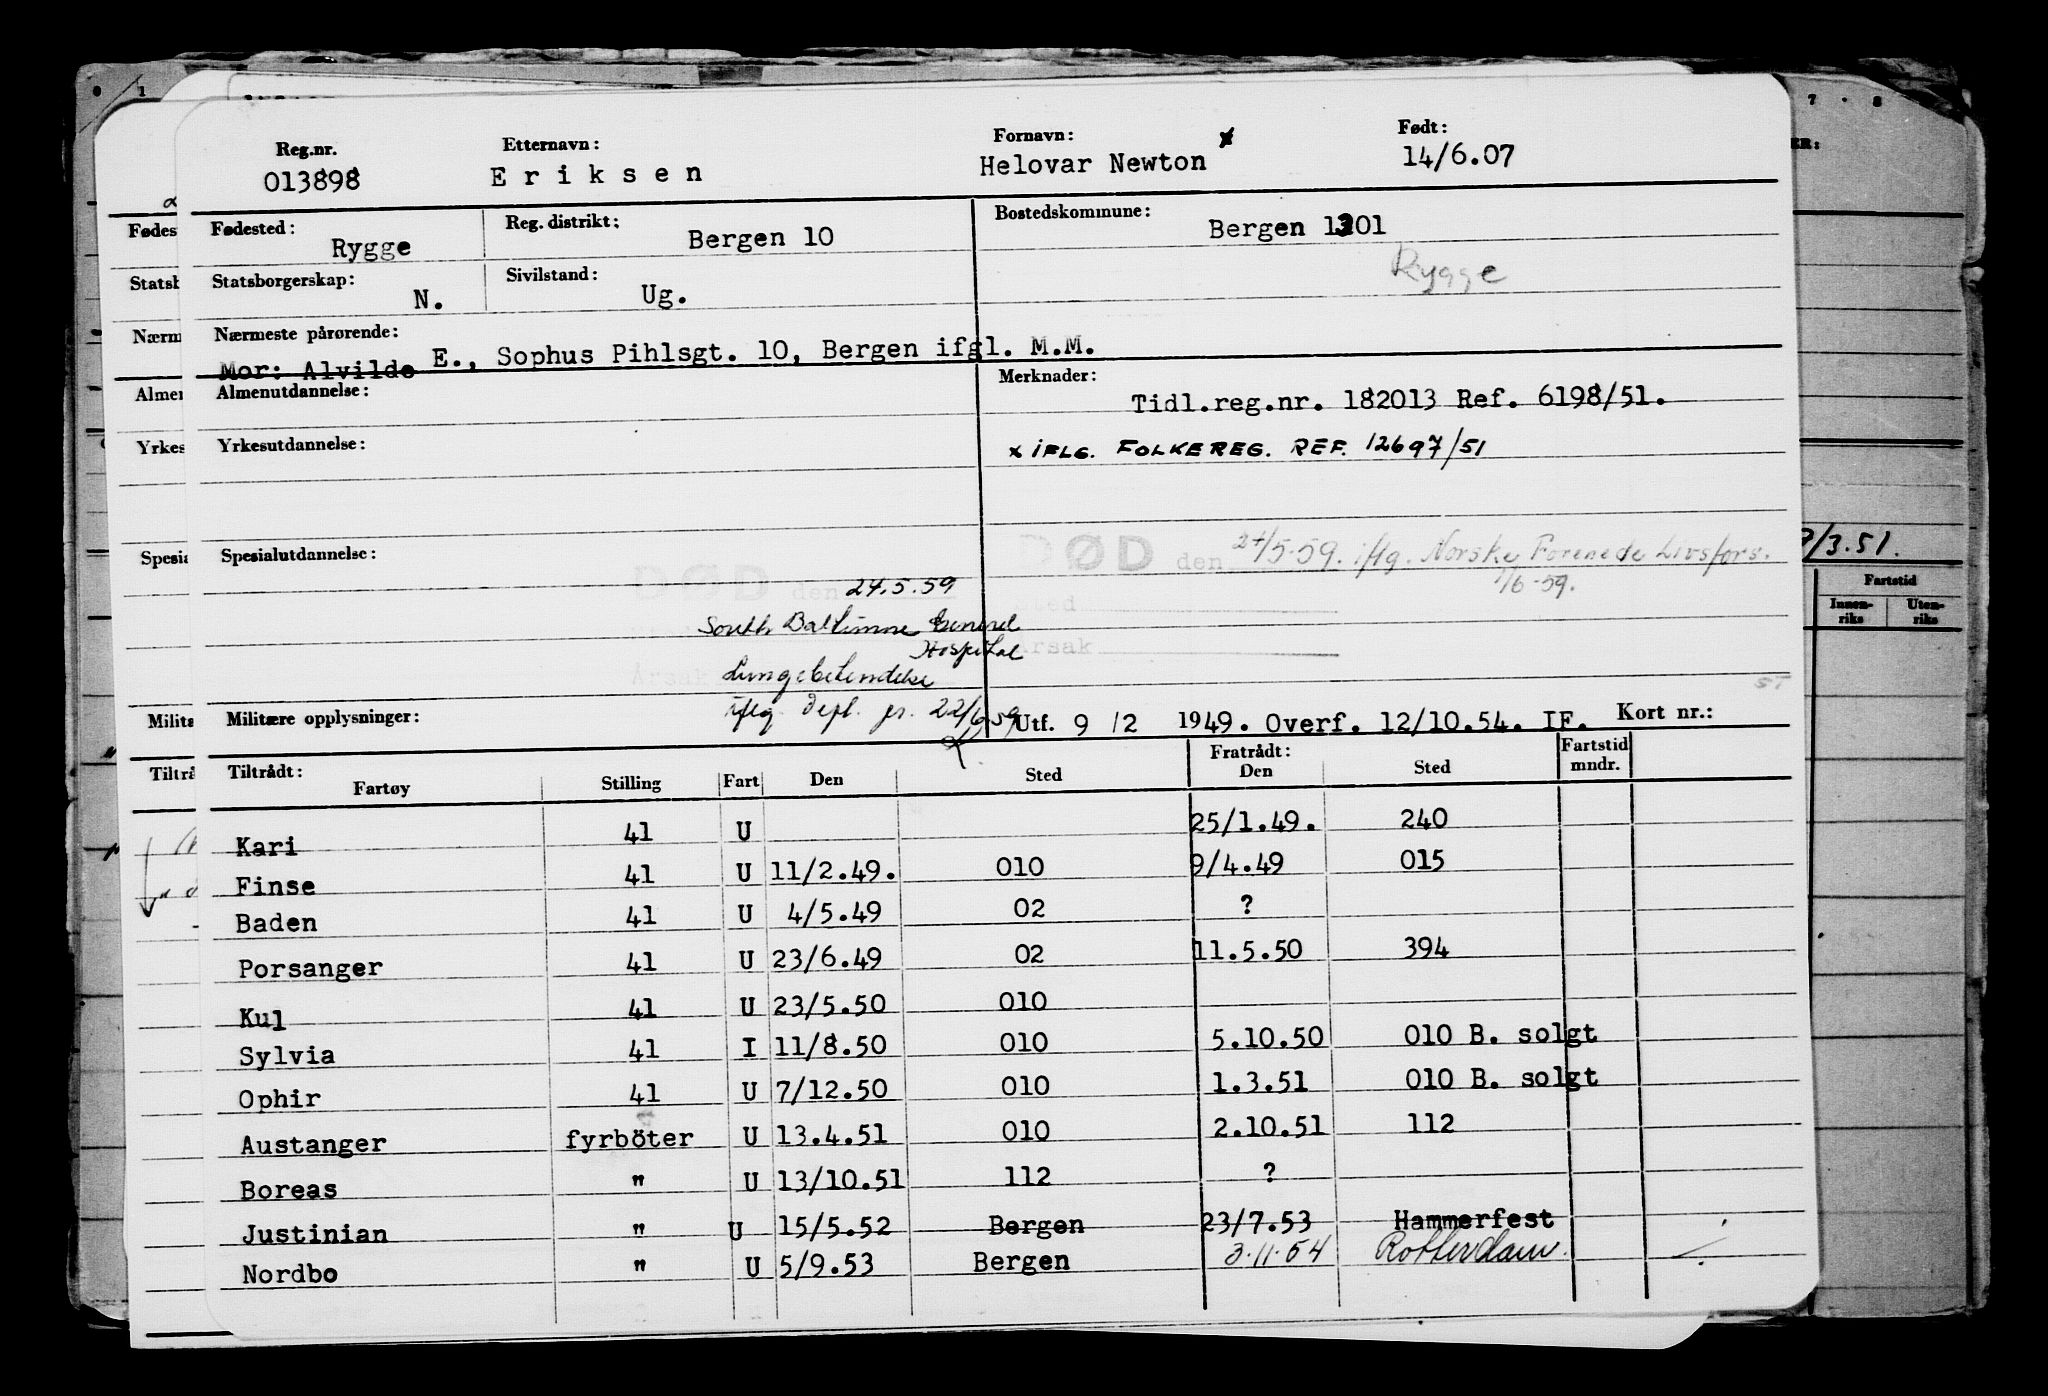 Reg.nr. Etternavn: Fornavn: Født:
013898 Eriksen Helovar Newton x 14/6.07
Fødested: Rygge Reg. distrikt: Bergen 10 Bostedskommune: Bergen 1301
Rygge
Statsborgerskap: N. Sivilstand: Ug.
Nærmeste pårørende:
Mor: Alvilde E., Sophus Pihlsgt. 10, Bergen ifgl. M.M.
Almenutdannelse: Merknader:
Tidl.reg.nr. 182013 Ref. 6198/51.
Yrkesutdannelse: x IFLG. FOLKEREG. REF. 12697/51
Spesialutdannelse: DØD den 24/5-59. iflg. Norske Forenede Livsfors.
1/6-59.
DØD den 24.5.59 Sted
South Baltimore General
Hospital Årsak
Årsak Lungebetendelse
iflg. depl. js. 22/6 59
Militære opplysninger: Utf. 9/2 1949. Overf. 12/10.54. IF. Kort nr.:
Tiltrådt: Fratrådt: Fartstid
Fartøy Stilling Fart Den Sted Den Sted mndr.
Kari 41 U 25/1.49. 240
Finse 41 U 11/2.49. 010 9/4.49 015
Baden 41 U 4/5.49 02 ?
Porsanger 41 U 23/6.49 02 11.5.50 394
Kul 41 U 23/5.50 010
Sylvia 41 I 11/8.50 010 5.10.50 010 B. solgt
Ophir 41 U 7/12.50 010 1.3.51 010 B. solgt
Austanger fyrböter U 13.4.51 010 2.10.51 112
Boreas " U 13/10.51 112 ?
Justinian " U 15/5.52 Bergen 23/7.53 Hammerfest
Nordbo " U 5/9.53 Bergen 3.11.54 Rotterdam.
Fødes
Statsb
Nærm
Almen
Yrkes
Spesia
Militæ
Tiltrå
7 8
ER:
/3.51.
Fartstid
Innen-
riks
Uten-
riks